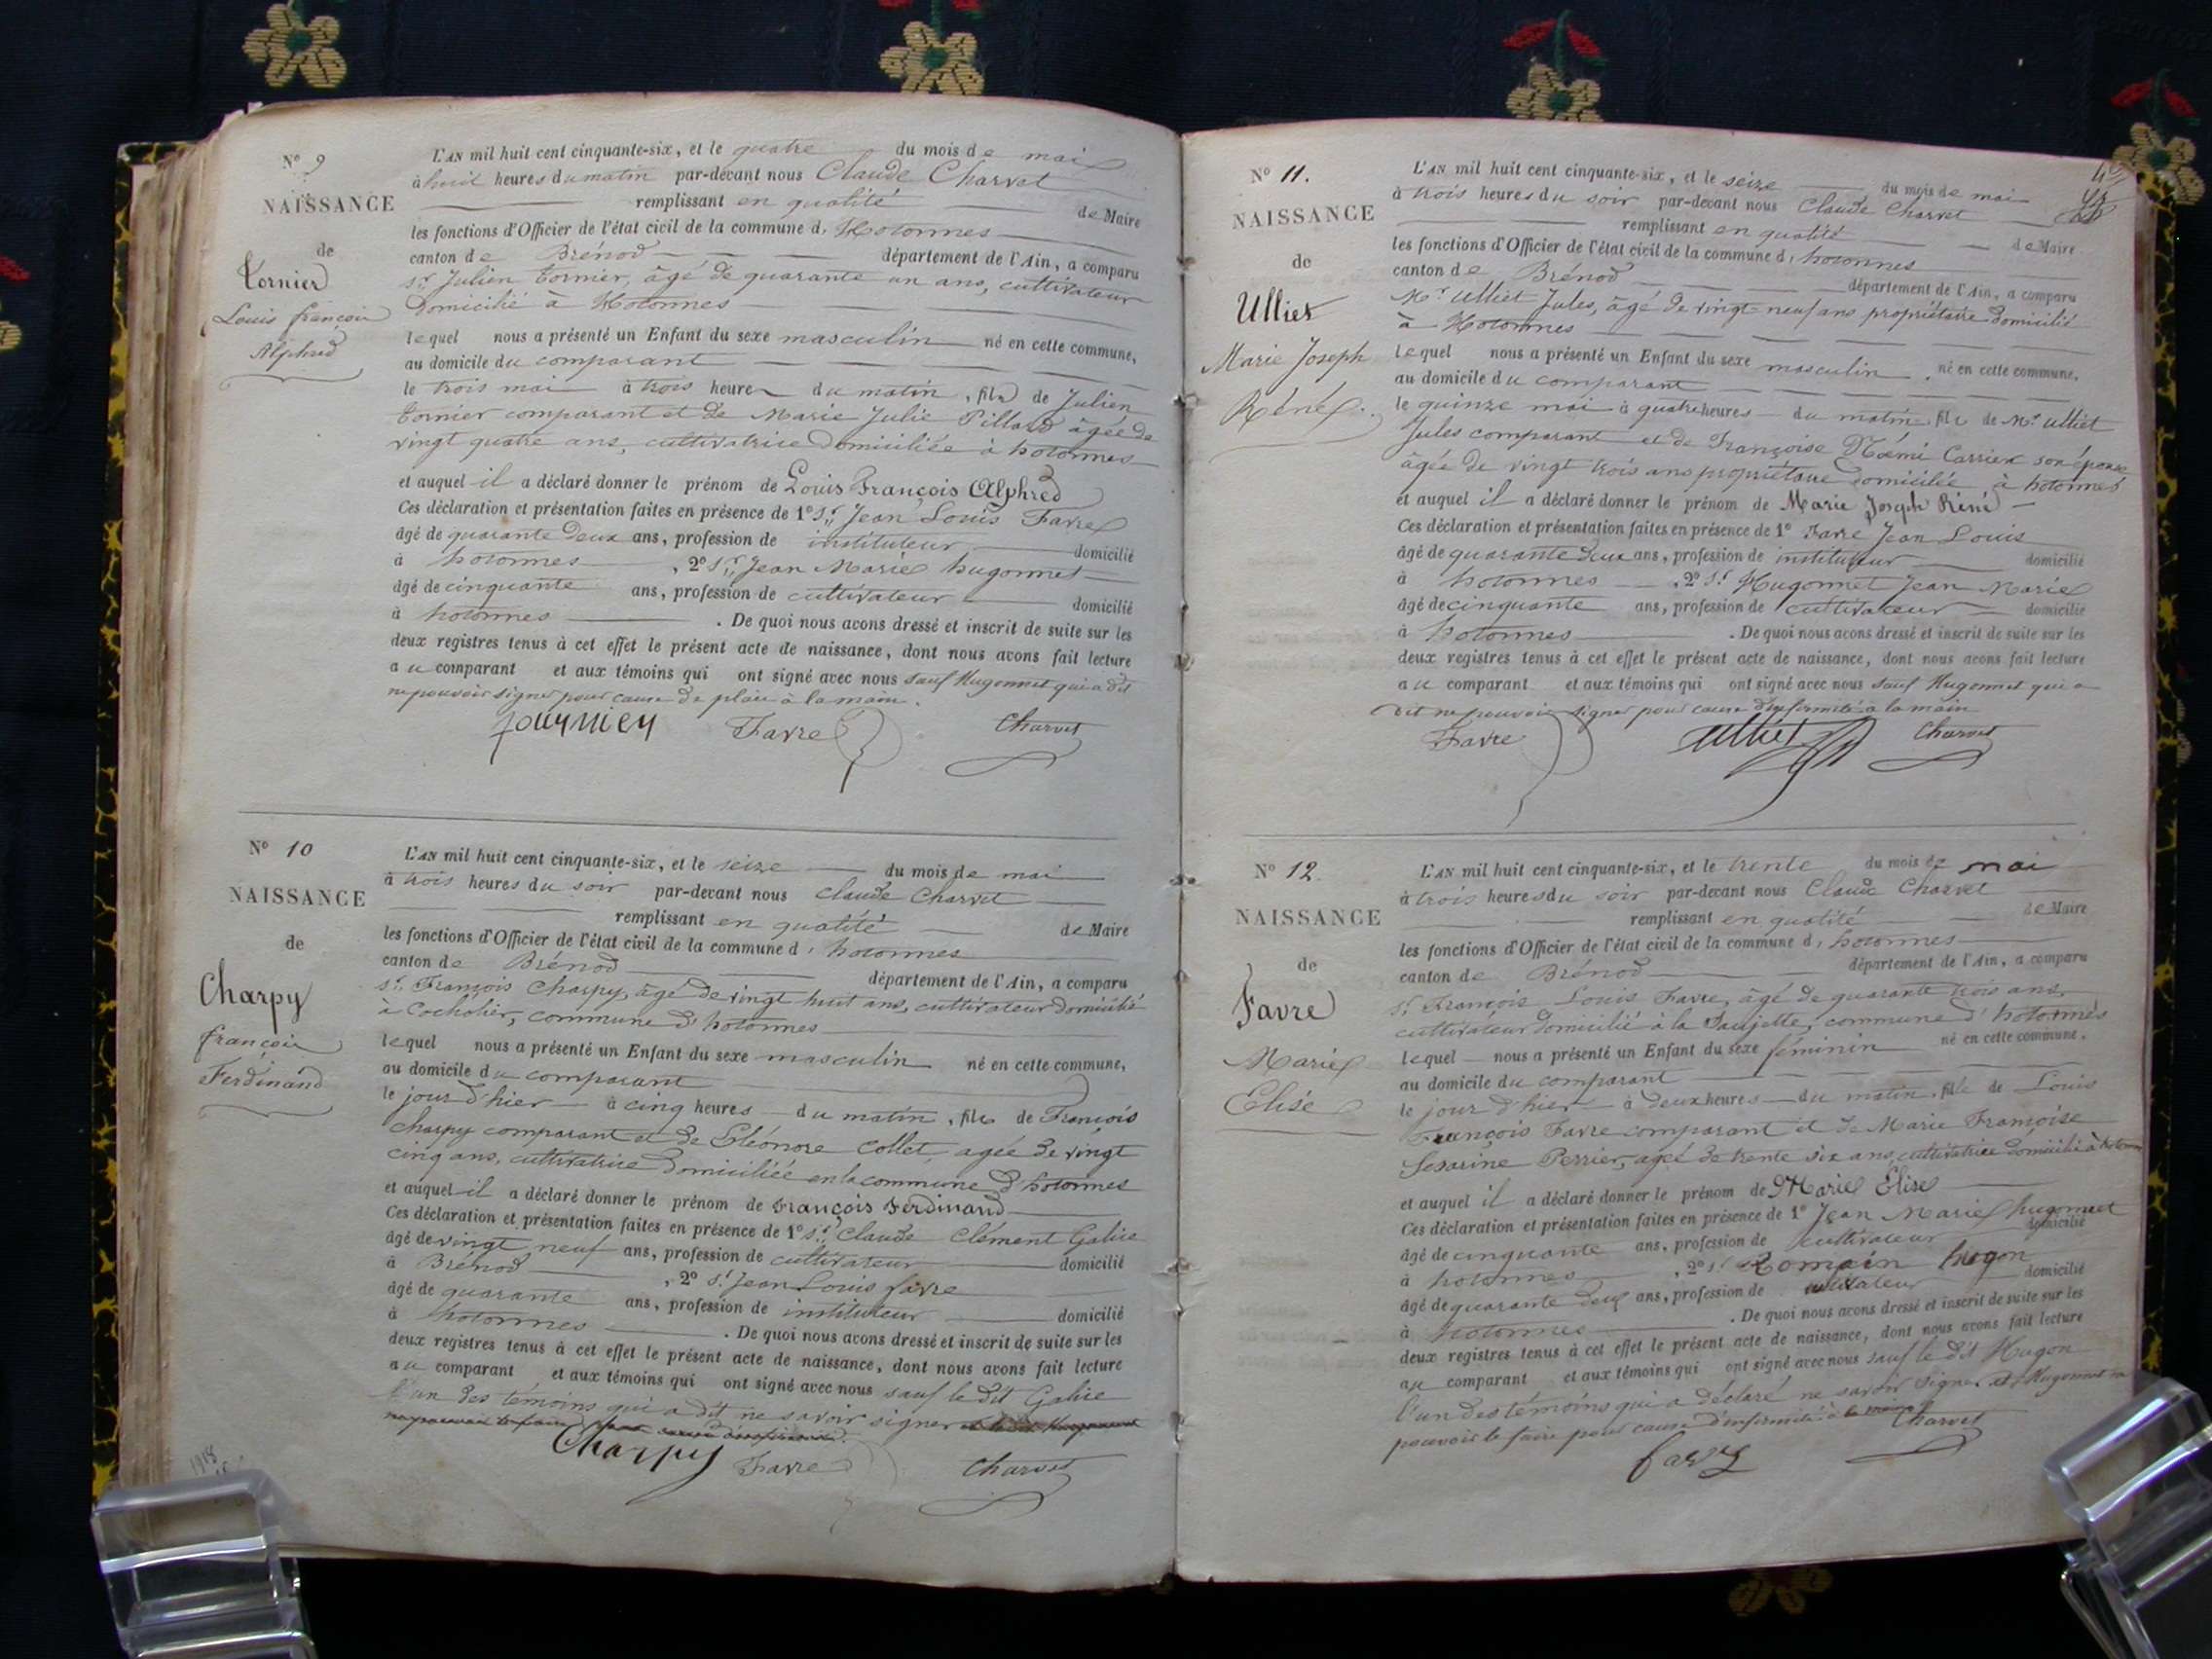 N° 9
NAISSANCE
de
Tornier
Louis françois
Alphred
L'AN mil huit cent cinquante-six, et le quatre du mois de mai
à huit heures du matin par-devant nous Claude Charvet
remplissant en qualité de Maire
les fonctions d'Officier de l'état civil de la commune d' Hotonnes
canton de Brénod département de l'Ain, a comparu
sr. Julien Tornier, âgé de quarante un ans, cultivateur
domicilié à Hotonnes
lequel nous a présenté un Enfant du sexe masculin né en cette commune,
au domicile du comparant
le trois mai à trois heures du matin, fils de Julien
Tornier comparant et de Marie Julie Pilland âgée de
vingt quatre ans, cultivatrice domiciliée à hotonnes
et auquel il a déclaré donner le prénom de Louis François Alphred
Ces déclaration et présentation faites en présence de 1° Sr. Jean Louis Favre
âgé de quarante deux ans, profession de instituteur domicilié
à hotonnes, 2° Sr. Jean Marie hugonnet
âgé de cinquante ans, profession de cultivateur domicilié
à hotonnes. De quoi nous avons dressé et inscrit de suite sur les
deux registres tenus à cet effet le présent acte de naissance, dont nous avons fait lecture
au comparant et aux témoins qui ont signé avec nous sauf Hugonnet qui a dit
ne pouvoir signer pour cause de plaie à la main.
Favre Charvet
N° 10
NAISSANCE
de
Charpy
françois
Ferdinand
L'AN mil huit cent cinquante-six, et le seize du mois de mai
à trois heures du soir par-devant nous Claude Charvet
remplissant en qualité de Maire
les fonctions d'Officier de l'état civil de la commune d' hotonnes
canton de Brénod département de l'Ain, a comparu
sr. François Charpy, âgé de vingt huit ans, cultivateur domicilié
à Cocholier, commune d'hotonnes
lequel nous a présenté un Enfant du sexe masculin né en cette commune,
au domicile du comparant
le jour d'hier à cinq heures du matin, fils de François
Charpy comparant et de Eléonore Collet agée de vingt
cinq ans, cultivatrice domiciliée en la commune d'hotonnes
et auquel il a déclaré donner le prénom de François Ferdinand
Ces déclaration et présentation faites en présence de 1° Sr. Claude Clément Galice
âgé de vingt neuf ans, profession de cultivateur domicilié
à Brénod, 2° Sr. Jean Louis favre
âgé de quarante ans, profession de instituteur domicilié
à hotonnes. De quoi nous avons dressé et inscrit de suite sur les
deux registres tenus à cet effet le présent acte de naissance, dont nous avons fait lecture
au comparant et aux témoins qui ont signé avec nous sauf le dit Galice
l'un des témoins qui a dit ne savoir signer
Charpy Favre Charvet
1918
N° 11.
NAISSANCE
de
Ulliet
Marie Joseph
Réné
L'AN mil huit cent cinquante-six, et le seize du mois de mai
à trois heures du soir par-devant nous Claude Charvet
remplissant en qualité de Maire
les fonctions d'Officier de l'état civil de la commune d' hotonnes
canton de Brénod département de l'Ain, a comparu
Mr. Ulliet Jules, âgé de vingt-neuf ans propriétaire domicilié
à Hotonnes
lequel nous a présenté un Enfant du sexe masculin, né en cette commune,
au domicile du comparant
le quinze mai à quatre heures du matin fils de Mr. Ulliet
Jules comparant et de Françoise Noémi Carrier son épouse
âgée de vingt trois ans propriétaire domiciliée à hotonnes
et auquel il a déclaré donner le prénom de Marie Joseph Réné
Ces déclaration et présentation faites en présence de 1° Favre Jean Louis
âgé de quarante deux ans, profession de instituteur domicilié
à hotonnes, 2° Sr. Hugonnet Jean Marie
âgé de cinquante ans, profession de cultivateur domicilié
à hotonnes. De quoi nous avons dressé et inscrit de suite sur les
deux registres tenus à cet effet le présent acte de naissance, dont nous avons fait lecture
au comparant et aux témoins qui ont signé avec nous sauf Hugonnet qui a
dit ne pouvoir signer pour cause d'infirmité à la main
Favre Ulliet Charvet
N° 12.
NAISSANCE
de
Favre
Marie
Elise
L'AN mil huit cent cinquante-six, et le trente du mois de mai
à trois heures du soir par-devant nous Claude Charvet
remplissant en qualité de Maire
les fonctions d'Officier de l'état civil de la commune d' hotonnes
canton de Brénod département de l'Ain, a comparu
sr. François Louis Favre, âgé de quarante trois ans,
cultivateur domicilié à la commune d'hotonnes
lequel nous a présenté un Enfant du sexe féminin né en cette commune,
au domicile du comparant
le jour d'hier à deux heures du matin, fille de Louis
François Favre comparant et de Marie Françoise
Sesarine Perrier, agée de trente six ans, cultivatrice domiciliée à hotonnes
et auquel il a déclaré donner le prénom de Marie Elise
Ces déclaration et présentation faites en présence de 1° Jean Marie hugonnet
âgé de cinquante ans, profession de cultivateur domicilié
à hotonnes, 2° Sr Romain hugon
âgé de quarante deux ans, profession de cultivateur domicilié
à hotonnes. De quoi nous avons dressé et inscrit de suite sur les
deux registres tenus à cet effet le présent acte de naissance, dont nous avons fait lecture
au comparant et aux témoins qui ont signé avec nous sauf le dit Hugon
l'un des témoins qui a déclaré ne savoir signer et Hugonnet ne
pouvoir le faire pour cause d'infirmité à la main Charvet